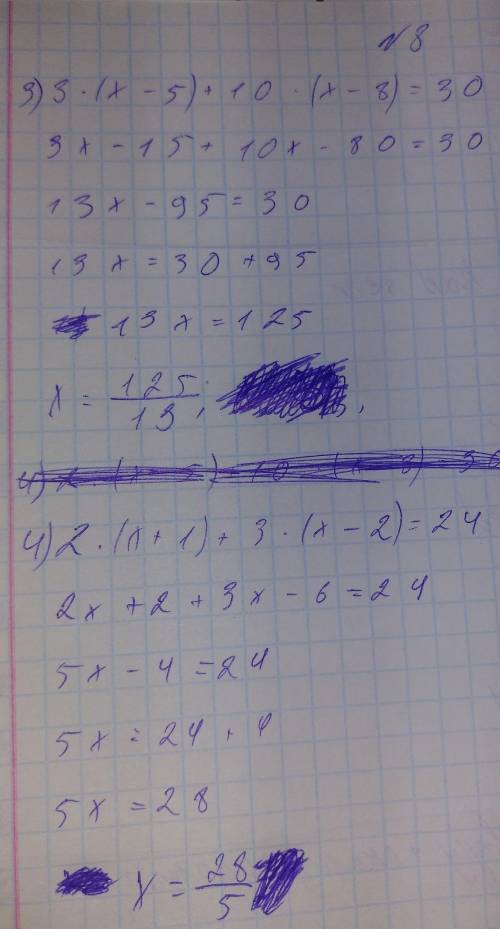 №8
3) 3 · (x - 5) + 10 · (x - 8) = 30
3x - 15 + 10x - 80 = 30
13x - 95 = 30
13x = 30 + 95
13x = 125
x = 125/13;
4) 2 · (x + 1) + 3 · (x - 2) = 24
2x + 2 + 3x - 6 = 24
5x - 4 = 24
5x = 24 + 4
5x = 28
x = 28/5